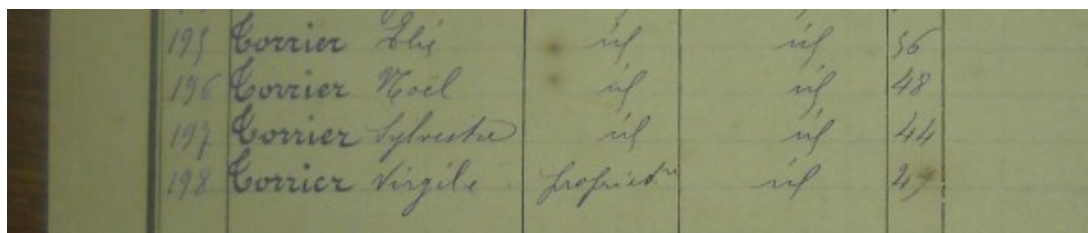 195 Torrier Elie id id 56
196 Torrier Noël id id 48
197 Torrier Sylvestre id id 44
198 Torrier Virgile propriedre id